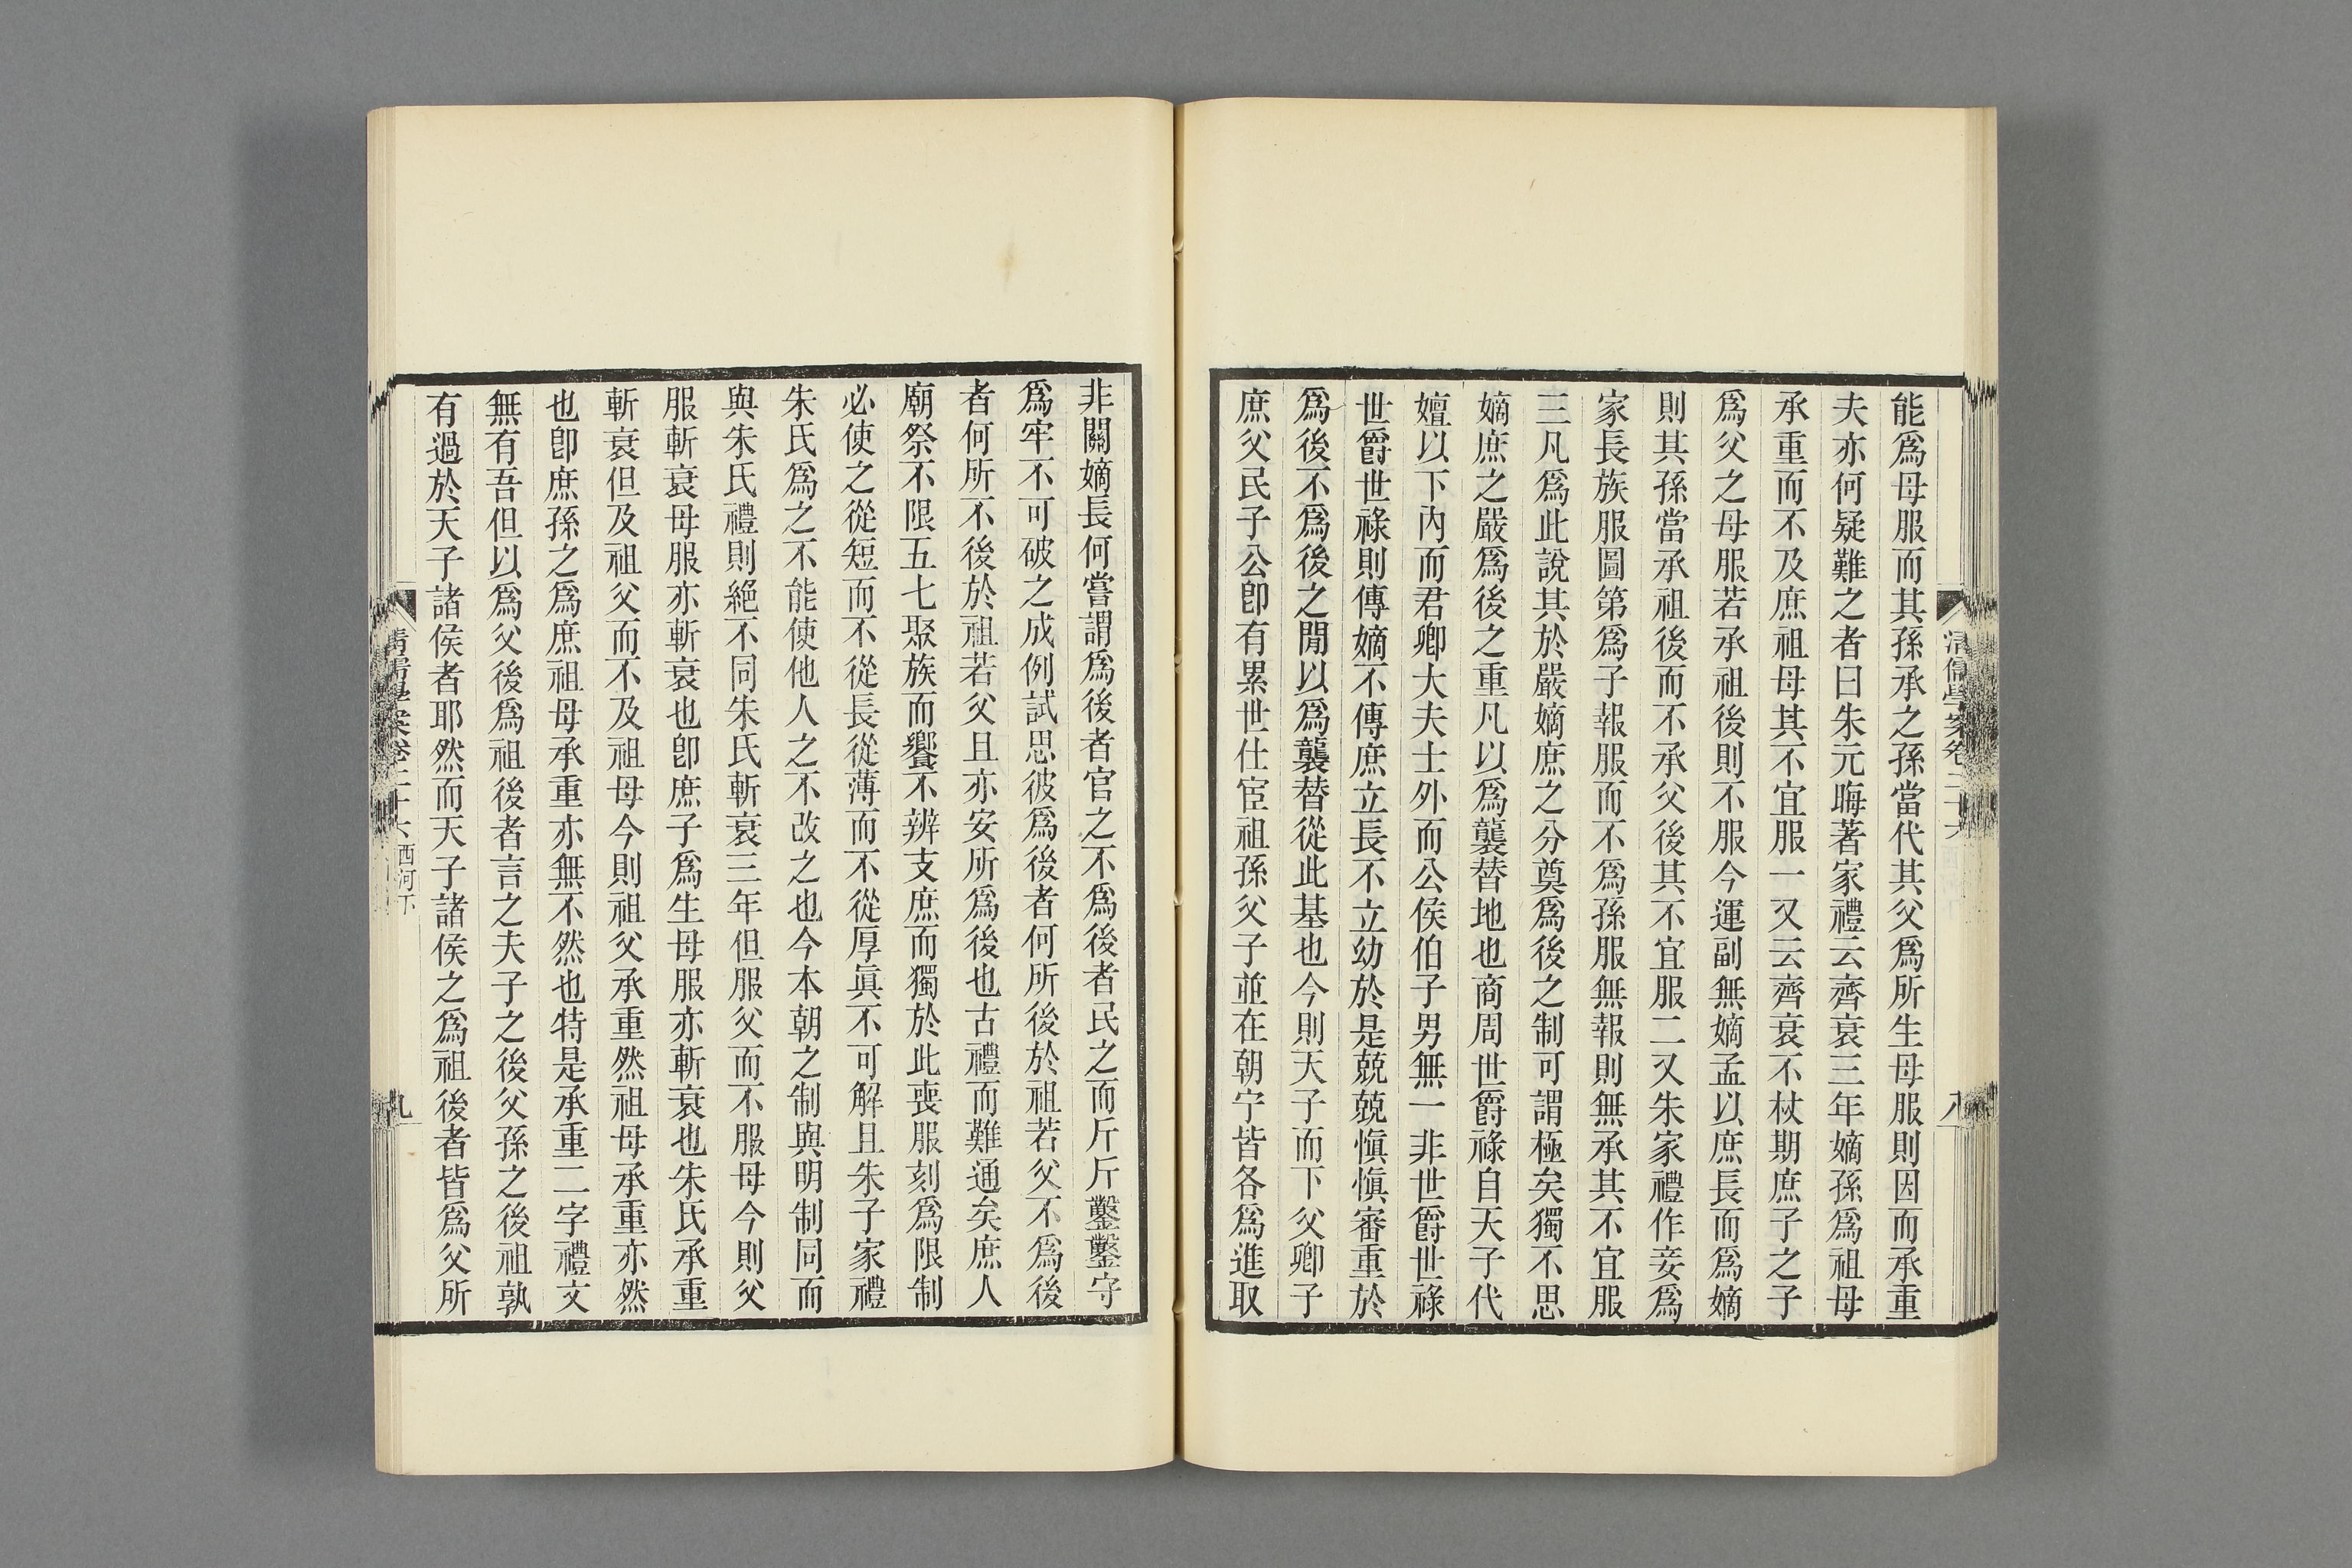 清儒學案卷二十六
八
能爲母服而其孫承之孫當代其父爲所生母服則因而承重
夫亦何疑難之者曰朱元晦著家禮云齊衰三年嫡孫爲祖母
承重而不及庶祖母其不宜服一又云齊衰不杖期庶子之子
爲父之母服若承祖後則不服今運副無嫡孟以庶長而爲嫡
則其孫當承祖後而不承父後其不宜服二又朱家禮作妾爲
家長族服圖第爲子報服而不爲孫服無報則無承其不宜服
三凡爲此說其於嚴嫡庶之分奠爲後之制可謂極矣獨不思
嫡庶之嚴爲後之重凡以爲襲替地也商周世爵祿自天子代
嬗以下內而君卿大夫士外而公侯伯子男無一非世爵世祿
世爵世祿則傳嫡不傳庶立長不立幼於是兢兢愼愼審重於
爲後不爲後之閒以爲襲替從此基也今則天子而下父卿子
庶父民子公卽有累世仕宦祖孫父子並在朝宁皆各爲進取
非關嫡長何嘗謂爲後者官之不爲後者民之而斤斤鑿鑿守
爲牢不可破之成例試思彼爲後者何所後於祖若父不爲後
者何所不後於祖若父且亦安所爲後也古禮而難通矣庶人
廟祭不限五七聚族而饗不辨支庶而獨於此喪服刻爲限制
必使之從短而不從長從薄而不從厚眞不可解且朱子家禮
朱氏爲之不能使他人之不改之也今本朝之制與明制同而
與朱氏禮則絕不同朱氏斬衰三年但服父而不服母今則父
服斬衰母服亦斬衰也卽庶子爲生母服亦斬衰也朱氏承重
斬衰但及祖父而不及祖母今則祖父承重然祖母承重亦然
也卽庶孫之爲庶祖母承重亦無不然也特是承重二字禮文
無有吾但以爲父後爲祖後者言之夫子之後父孫之後祖孰
有過於天子諸侯者耶然而天子諸侯之爲祖後者皆爲父所
清儒學案卷二十六 西河下
九